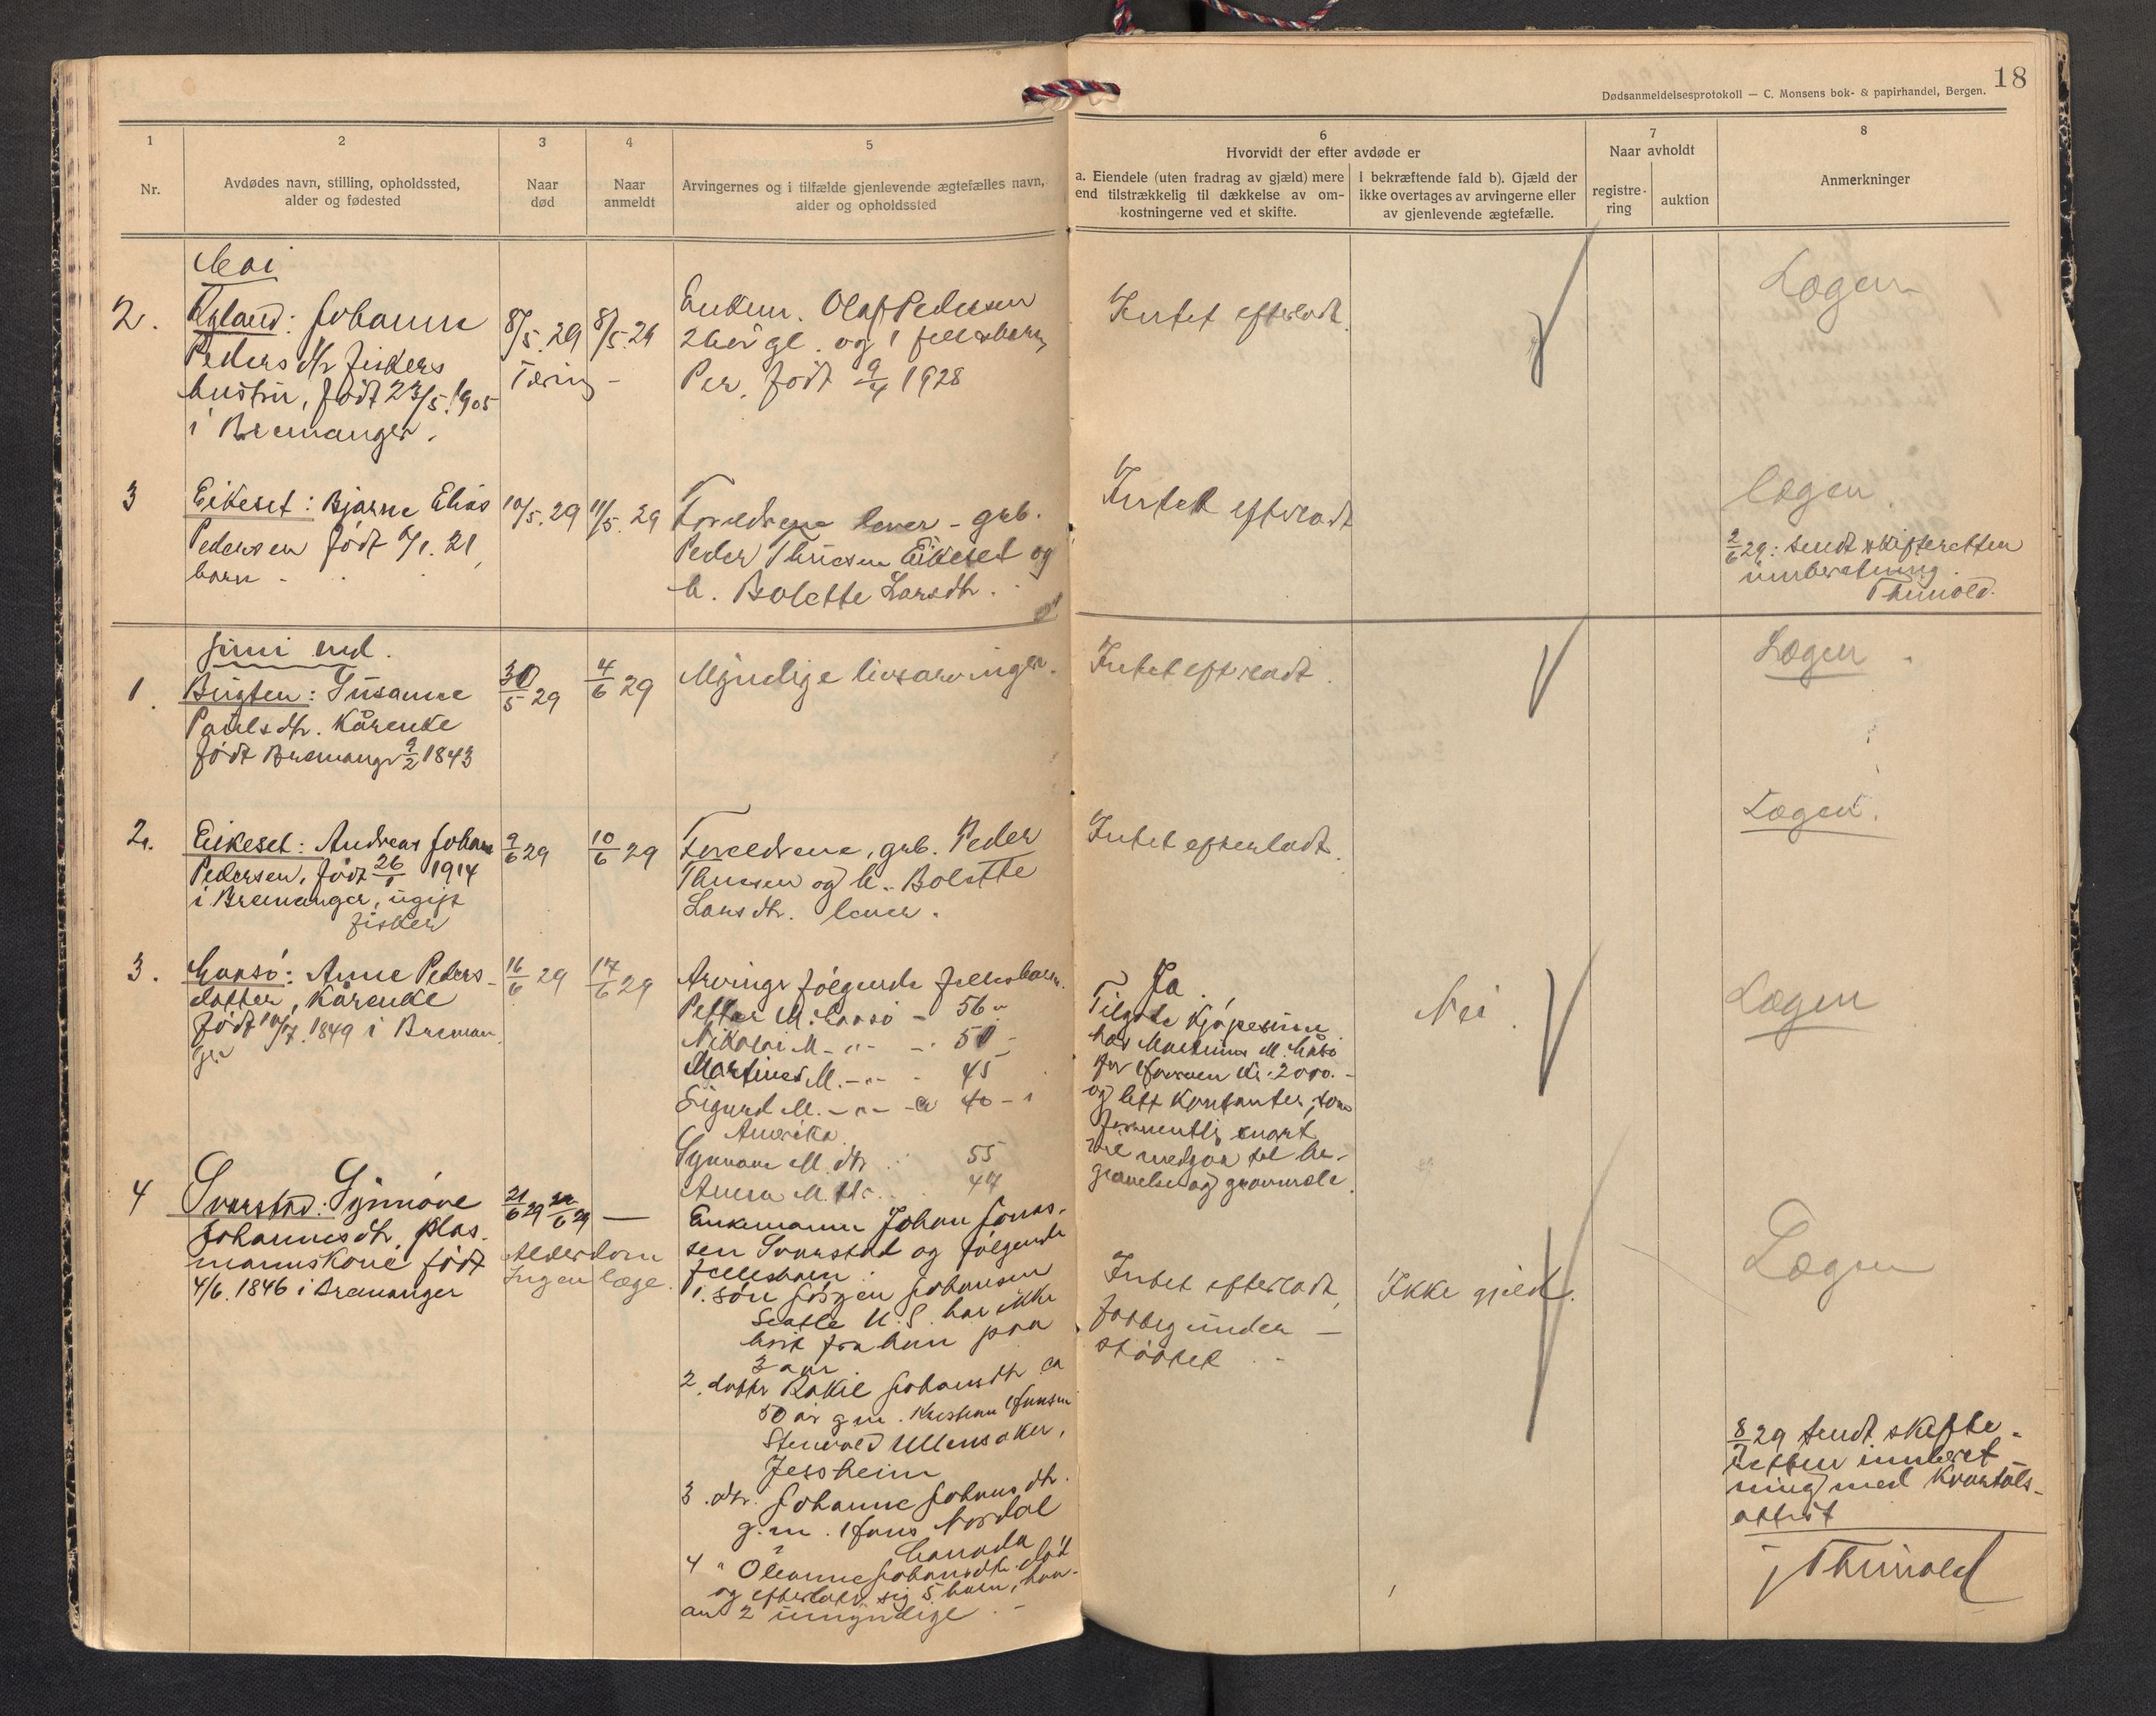 18
Dødsanmeldelsesprotokoll — C. Monsens bok- & papirhandel, Bergen.
1
Nr.
2
Avdødes navn, stilling, opholdssted,
alder og fødested
3
Naar
død
4
Naar
anmeldt
5
Arvingernes og i tilfælde gjenlevende ægtefælles navn,
alder og opholdssted
6
Hvorvidt der efter avdøde er
a. Eiendele (uten fradrag av gjæld) mere
end tilstrækkelig til dækkelse av om-
kostningerne ved et skifte.
I bekræftende fald b). Gjæld der
ikke overtages av arvingerne eller
av gjenlevende ægtefælle.
7
Naar avholdt
registre-
ring
auktion
8
Anmerkninger
Mai
2.
Johanne
Pedersdtr fiskers
hustru, født 23/5. 1905
i Bremanger.
8/5. 29
Tæring -
8/5. 29
Enkem. Olaf Pedersen
og 1 fellesbarn
Per, født 9/4 1928
Intet efterladt.
Lægen
3
Eikeset: Bjarne Elias
Pedersen født 6/1. 21,
barn -
10/5. 29
11/5. 29
Foreldrene lever - grb.
Peder Thuesen Eikeset og
h. Bolette Larsdtr.
Intet efterladt
Lægen.
2/6 29: sendt skifteretten
innberetning.
Thunold.
Juni md.
1.
Susanne
Paulsdtr. Kårenke
født Bremanger 9/2 1843
30/5 29
4/6 29
Myndige livsarvinger.
Intet efterladt.
Lægen
2.
Eikeset: Andreas Johan
Pedersen, født 26/1 1914
i Bremanger, ugift
fisker
9/6 29
10/6 29
Foreldrene, grb. Peder
Thuesen og h. Bolette
Larsdtr. lever.
Intet efterladt.
Lægen.
3.
Anne Peders-
datter, Kårenke
født 10/7. 1849 i Breman
ger
16/6 29
17/6 29
Arvinger følgende fellesbarn.
Petter M. - 56
Nikolai M - " - 51
Martines M. - " - 45
Sigurd M. - " - ca 40 - i
Amerika
Synnøve M. dtr 55
Anna M. dtr. 47
Ja.
Tilgode kjøpesum
hos Martinus M.
kr. 2000.-
og litt kontanter, som
formentlig snart
vil medgaa til be-
gravelse og gravmæle.
Nei.
Lægen
4
Svarstad: Synnøve
Johannesdtr, plas-
mannskone født
4/6. 1846 i Bremanger
21/6 29
29
Alderdom
Ingen læge.
Enkemann Johan Jonas-
sen Svarstad og følgende
fellesbarn:
1. søn Jørgen Johansen
Seatle U.S. har ikke
hørt fra ham paa
3 aar
2. datter Rakel Johansdtr ca
50 år g.m. Kristian Hansen
Stenvold Ullensaker,
Jessheim
3. dtr. Johanne Johansdtr.
g.m. Hans Nordal
Canada
4 " Oleanne Johansdtr. død
og efterlater sig 5 barn, hvor-
av 2 umyndige. -
Intet efterladt,
fattigunder -
støttet
Ikke gjeld.
Lægen
8/7 29 sendt skifte-
retten innberet-
ning med kvartals-
attest
Thunold